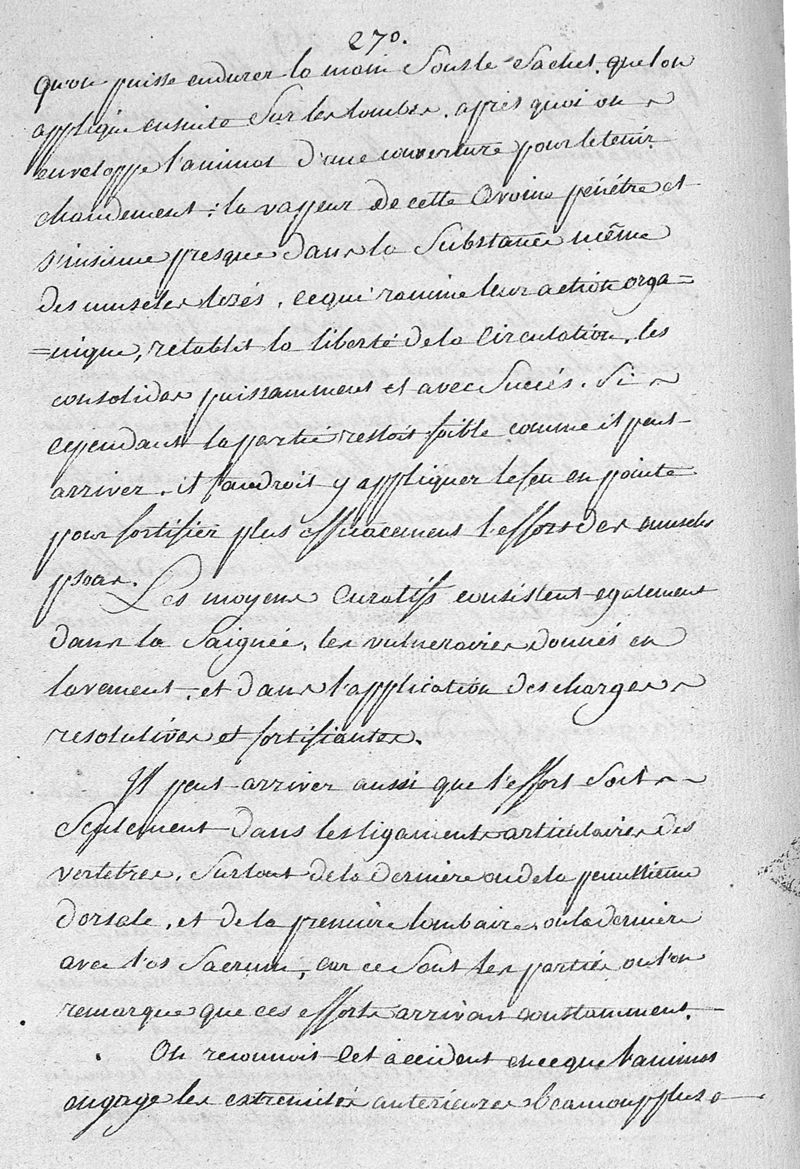 270.
qu'on puisse endurer la main sous le sachet que l'on
applique ensuite sur les lombes, après quoi on
enveloppe l'animal d'une couverture pour le tenir
chaudement; la vapeur de cette avoine pénétre et
s'insinue presque dans la substance même
des muscles lezés, ce qui ranime leur action orga=
=nique, retablit la liberté de la circulation, les
consolide puissamment et avec succés. Si
cependant la partie restoit foible comme il peut
arriver, il faudroit y appliquer le feu en pointe
pour fortifier plus efficacement l'effort des muscles
psoas.
Les moyens curatifs consistent également
dans la saignée, les vulneraires donnés en
lavement, et dans l'application des charges
resolutives et fortifiantes.
Il peut arriver aussi que l'effort soit
seulement dans les ligaments articulaires des
vertebres, surtout de la derniére ou de la penultiéme
dorsale, et de la premiére lombaire, ou la derniére
avec l'os sacrum, car ce sont les parties ou l'on
remarque que ces efforts arrivent constamment.
On reconnoit cet accident en ce que l'animal
engage les extremités anterieures beaucoup plus